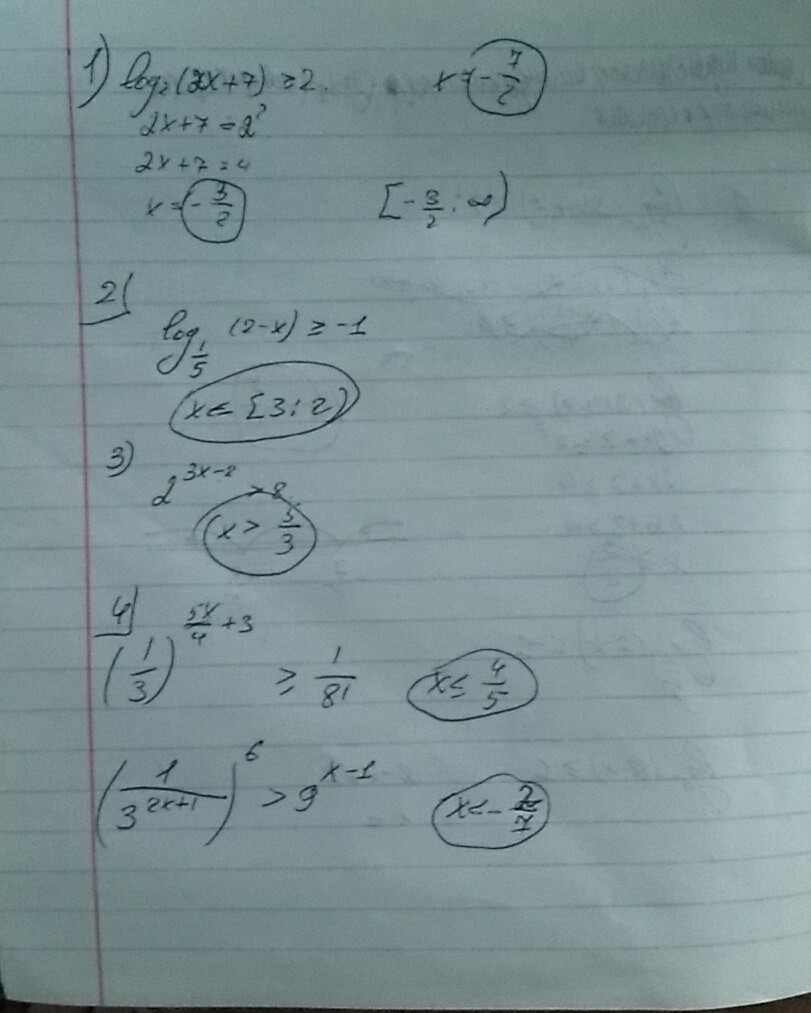 1) log₂(2x+7) ≥ 2. x > -7/2
2x+7 = 2²
2x+7 = 4
x = -3/2 [-3/2 ; ∞)
2)
log_{1/5} (2-x) ≥ -1
x ∈ [3 ; 2)
3)
2^{3x-2} > 8.
x > 5/3
4)
(1/3)^{5x/4 + 3} ≥ 1/81 x ≤ 4/5
(1/3^{2x+1})^6 > 9^{x-1} x < -2/7